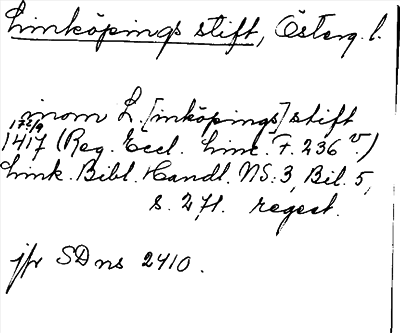 Linköpings stift, Österg. l.
inom L.[inköpings] stift
17/9
1417 (Reg. Eccl. Linc. F. 236 v.)
Link. Bibl. Handl. NS:3, Bil. 5,
s. 271. regest.
jfr SD ns 2410.